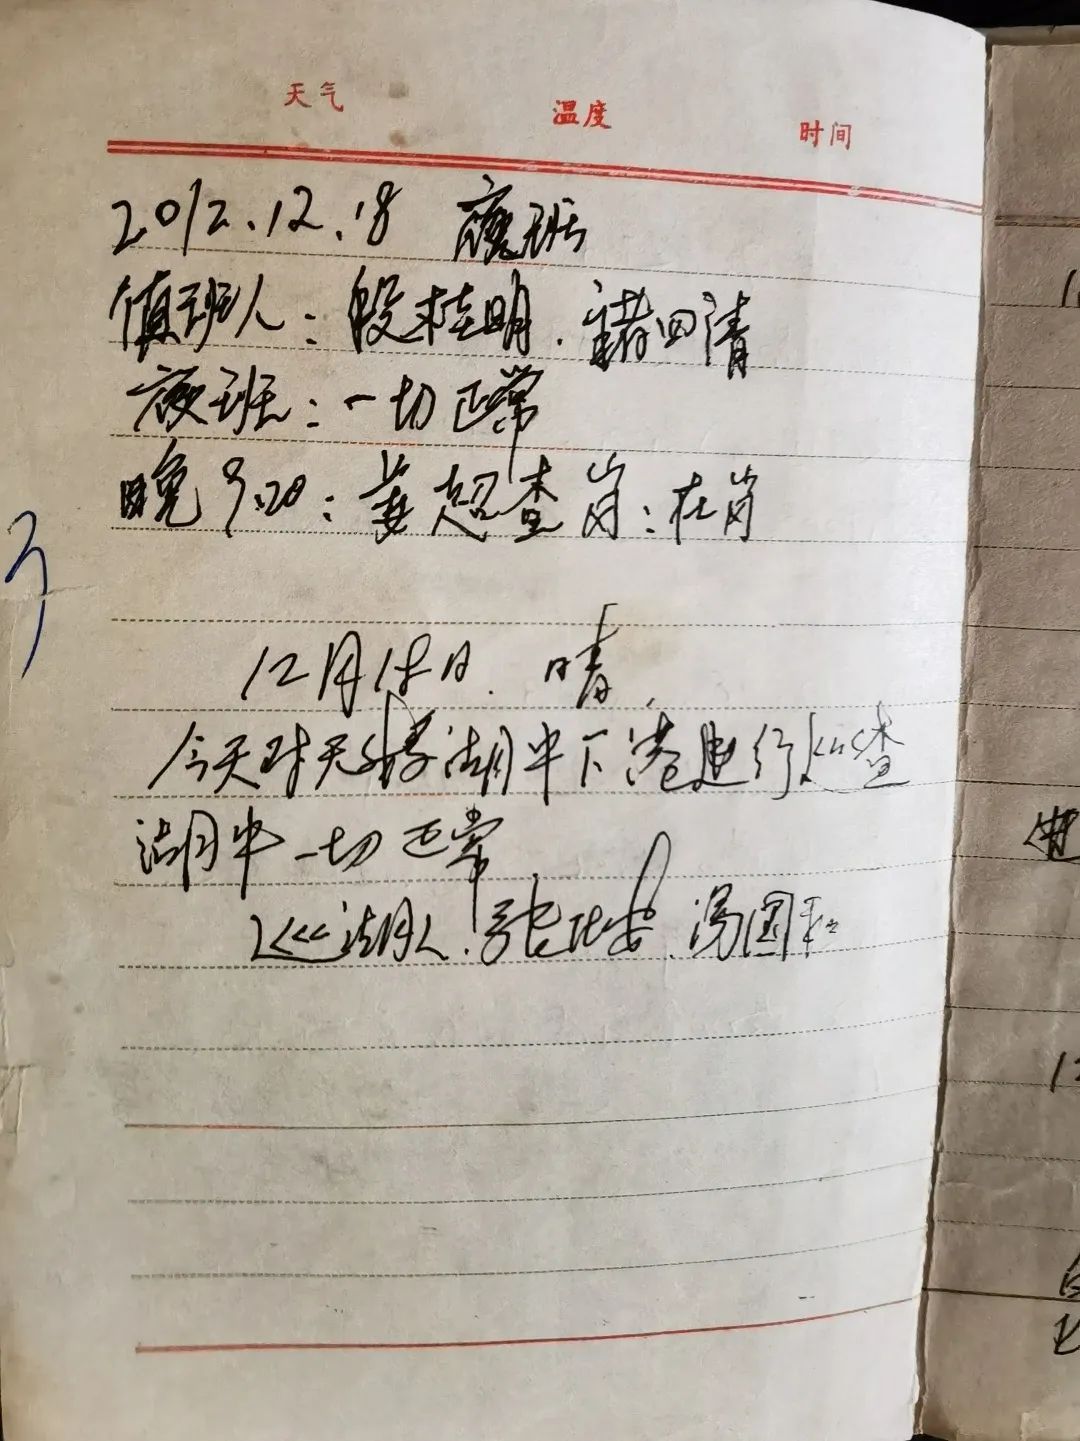 天气 温度 时间
2012.12.18 夜班
值班人：殷桂明.褚四清
夜班：一切正常
晚9.20：姜超查岗：在岗
3
12月18日.晴.
今天对天鹅湖中下港进行巡查
湖中一切正常
巡湖人:张 .汤国和